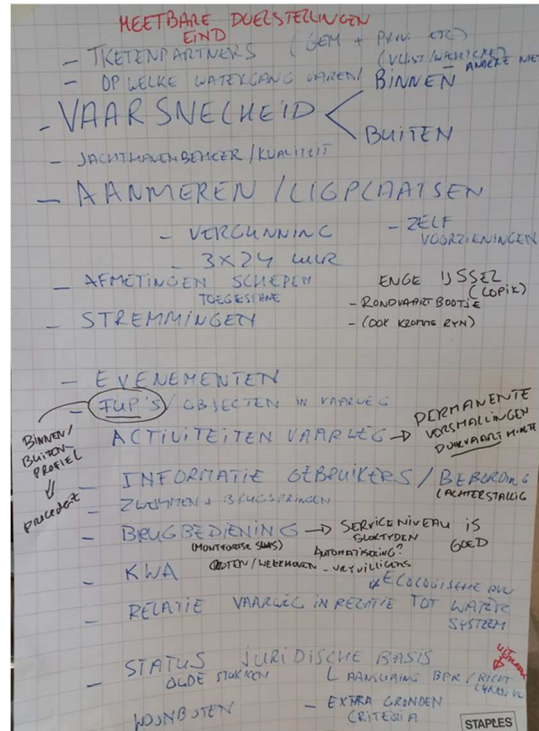 MEETBARE DOELSTELLINGEN
EIND
- KETENPARTNERS (GEM + PRIV. ETC)
- OP WELKE WATERGANG VAREN / ANDERE NIET
- VAARSNELHEID < BINNEN
BUITEN
- JACHTHAVENBEHEER / KWALITEIT
- AANMEREN / LIGPLAATSEN
- VERGUNNING - ZELF
VOORZIENINGEN
- 3x24 UUR
- AFMETINGEN SCHEPEN ENGE IJSSEL
TOEGESTANE (LOPIK)
- RONDVAART BOOTJE
- STREMMINGEN - (OOK KROMME RYN)
- EVENEMENTEN
- / OBJECTEN IN VAARWEG
BINNEN/
BUITEN
PROFIEL
ACTIVITEITEN VAARWEG → PERMANENTE
VERSMALLINGEN
- INFORMATIE GEBRUIKERS / BEBORDING
(ACHTERSTALLIG
- ZWEMMEN + BRUGSPRINGEN
- BRUGBEDIENING → SERVICENIVEAU IS
GOED
AUTOMATISERING?
- KWA - VRYWILLIGERS
- RELATIE VAARWEG IN RELATIE TOT WATER
SYSTEEM
- STATUS JURIDISCHE BASIS
OUDE STUKKEN AANSLUITING BPR /
WOONBOTEN - EXTRA GRONDEN
CRITERIA
STAPLES